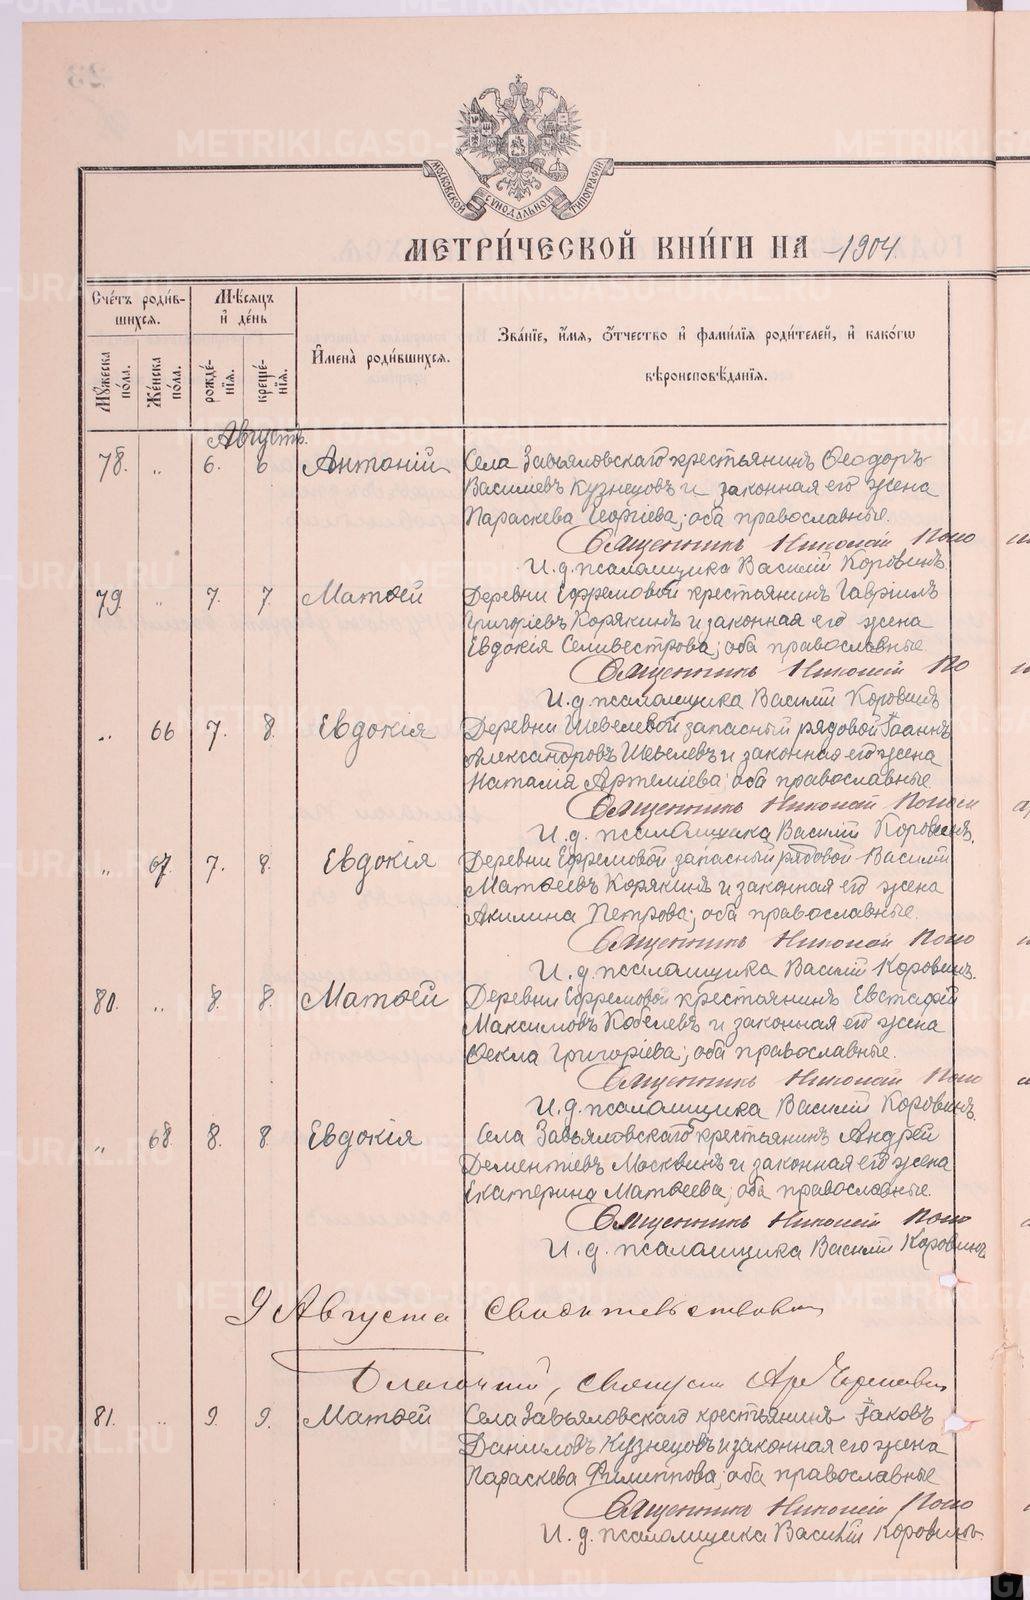 МОСКОВСКОЙ СѴНОДАЛЬНОЙ ТИПОГРАФІИ
МЕТРИ́ЧЕСКОЙ КНИ́ГИ НА 1904.
Сче́тъ роди́в-
шихся.
Мѣ́сяцъ
и҆ де́нь
И҆мена̀ роди́вшихся.
Зва́нїе, и҆́мя, ѻ҆́тчество и҆ фами́лїѧ роди́телей, и҆ како́гѡ
вѣроисповѣ́данїѧ.
Мꙋ́жеска
по́ла.
Же́нска
по́ла.
рожде́-
нїѧ.
креще́-
нїѧ.
Августъ.
78. „ 6. 6 Антоній Села Завьяловскаго крестьянинъ Ѳеодоръ
Васильевъ Кузнецовъ и законная его жена
Параскева Георгіева; оба православные.
Священникъ Николай Попо
И.д. псаломщика Василій Коровинъ
79. „ 7. 7. Матѳей Деревни Ефремовой крестьянинъ Гавріилъ
Григоріевъ Корякинъ и законная его жена
Евдокія Селивестрова; оба православные
Священникъ Николай По
И.д. псаломщика Василій Коровинъ
„ 66 7. 8. Евдокія Деревни Шевелевой запасный рядовой Іоаннъ
Александровъ Шевелевъ и законная его жена
Наталія Артеміева; оба православные
Священникъ Николай Попов
И.д. псаломщика Василій Коровинъ.
„ 67. 7. 8. Евдокія Деревни Ефремовой запасный рядовой Василій
Матѳеевъ Корякинъ и законная его жена
Акилина Петрова; оба православные.
Священникъ Николай Попо
И.д. псаломщика Василій Коровинъ.
80. „ 8. 8. Матѳей Деревни Ефремовой крестьянинъ Евстафій
Максимовъ Кобелевъ и законная его жена
Ѳекла Григоріева; оба православные.
Священникъ Николай Попо
И.д. псаломщика Василій Коровинъ.
„ 68. 8. 8. Евдокія Села Завьяловскаго крестьянинъ Андрей
Дементіевъ Москвинъ и законная его жена
Екатерина Матѳеева; оба православные.
Священникъ Николай Попо
И.д. псаломщика Василій Коровинъ
9 Августа Свидѣтельствовалъ
Благочинный, Священникъ
81. „ 9. 9. Матѳей Села Завьяловскаго крестьянинъ Іаковъ
Даниловъ Кузнецовъ и законная его жена
Параскева Филиппова; оба православные
Священникъ Николай Попо
И.д. псаломщика Василій Коровинъ.
METRIKI.GASO-URAL.RU